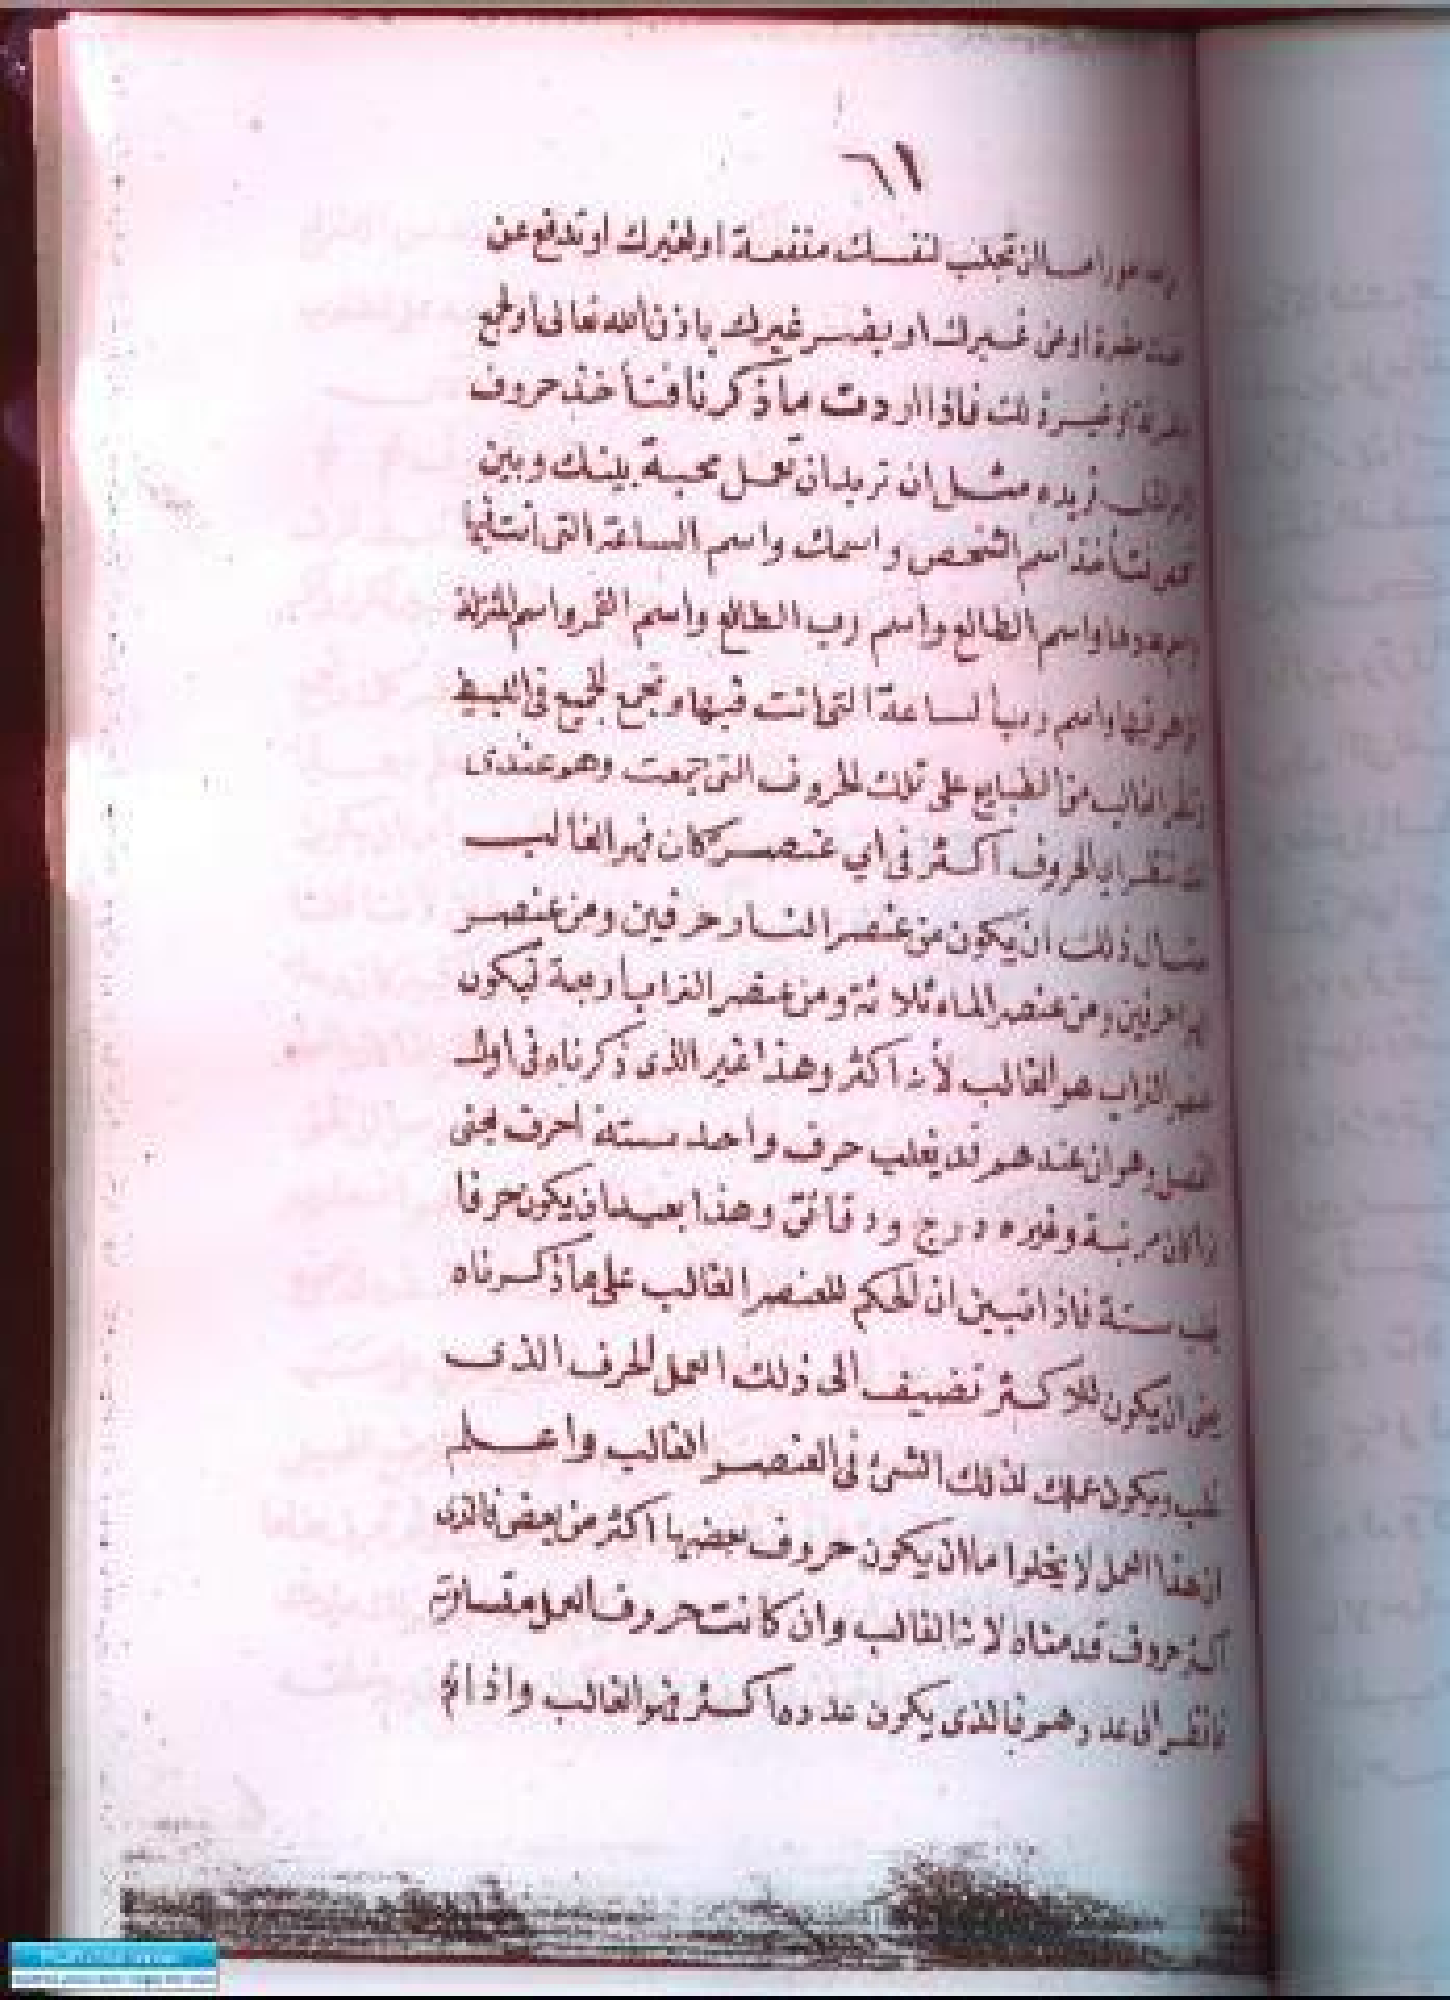 ٦١
ان تجذب لنفسك منفعة اولغيرك اوتدفع عن
مضرة اوعن غيرك او يضر غيرك باذن الله تعالى اولجمع
اوغير ذلك فاذا اردت ما ذكرنا فتأخذ حروف
تريده مثل ان تريد ان تعمل محبة بينك وبين
فتأخذ اسم الشخص واسمك واسم الساعة التى انت فيها
واسم الطالع واسم رب الطالع واسم القمر واسم المنزلة
هو فيها واسم رب الساعة التى انت فيها وتجمع الجميع فى البسط
الغالب من الطبايع على تلك الحروف التى جمعت وهو عندى
الحروف اكثر فى اي عنصر كان فهو الغالب
مثال ذلك ان يكون من عنصر النار حرفين ومن عنصر
حرفين ومن عنصر الماء ثلاثة ومن عنصر التراب اربعة فيكون
التراب هو الغالب لأنه اكثر وهذا غير الذى ذكرناه فى اول
الفصل وهو ان عندهم قد يغلب حرف واحد ستة احرف يعنى
مرتبة وغيره درج ودقائق وهذا بعيد ان يكون حرفا
ستة فاذا تبين ان الحكم للعنصر الغالب على ما ذكرناه
يعنى ان يكون للاكثر تضيف الى ذلك العمل الحرف الذى
ويكون عملك لذلك الشئ فى العنصر الغالب واعلم
ان هذا العمل لا يخلوا ما ان يكون حروف بعضها اكثر من بعض فالذى
اكثر حروف قدمناه لانه الغالب وان كانت حروف العمل متساوية
فانظر الى عددهم فالذى يكون عدده اكثر فهو الغالب واذا